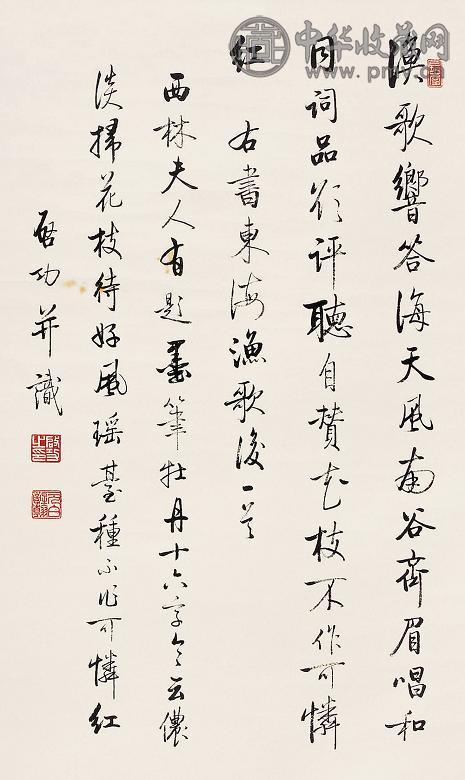 漁歌響答海天風南谷齊眉唱和
同詞品欲評聽自贊花枝不作可憐
紅
右書東海漁歌後一首
西林夫人有題墨筆牡丹十六字令云儂
淡掃花枝待好風瑤臺種不作可憐紅
启功并識
中华收藏网